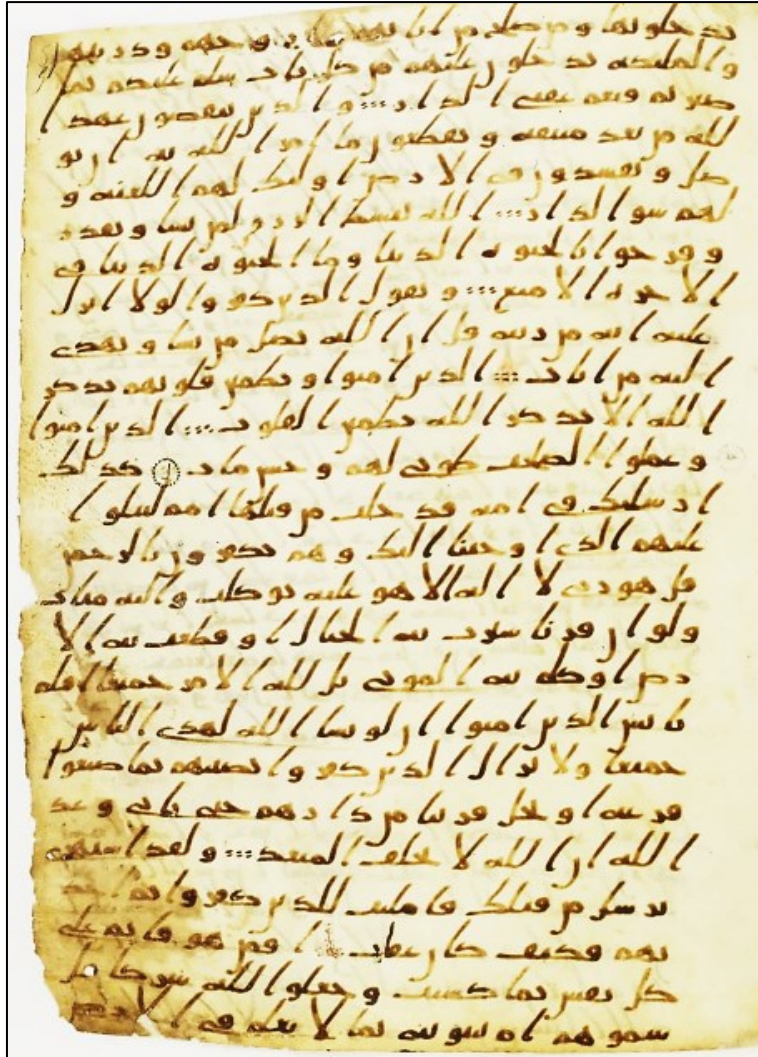 يدخلونها ومن صلح من ابايهم وازوجهم وذريتهم
والمليكة يدخلون عليهم من كل باب سلم عليكم بما
صبرتم فنعم عقبى الدار والذين ينقضون عهد ا
لله من بعد ميثقه ويقطعون ما امر الله به ان يو
صل ويفسدون في الارض اوليك لهم اللعنة و
لهم سو الدار الله يبسط الرزق لمن يشا ويقدر
وفرحوا بالحيوة الدنيا وما الحيوة الدنيا في
الاخرة الا متع ويقول الذين كفروا لولا انزل
عليه اية من ربه قل ان الله يضل من يشا ويهدي
اليه من اناب الذين امنوا وتطمين قلوبهم بذكر
الله الا بذكر الله تطمين القلوب الذين امنوا
وعملوا الصلحت طوبى لهم وحسن ماب كذلك
ارسلنك في امة قد خلت من قبلها امم لتتلوا
عليهم الذي اوحينا اليك وهم يكفرون بالرحمن
قل هو ربي لا اله الا هو عليه توكلت واليه متاب
ولو ان قرنا سيرت به الجبال او قطعت به الا
رض او كلم به الموتى بل لله الامر جميعا افلم
يايس الذين امنوا ان لو يشا الله لهدى الناس
جميعا ولا يزال الذين كفروا تصيبهم بما صنعوا
قرعة او تحل قريبا من دارهم حتى ياتي وعد
الله ان الله لا يخلف الميعد ولقد استهزى
برسل من قبلك فامليت للذين كفروا ثم اخذ
تهم فكيف كان عقاب افمن هو قايم على
كل نفس بما كسبت وجعلوا لله شركا قل
سموهم ام تنبونه بما لا يعلم في الارض